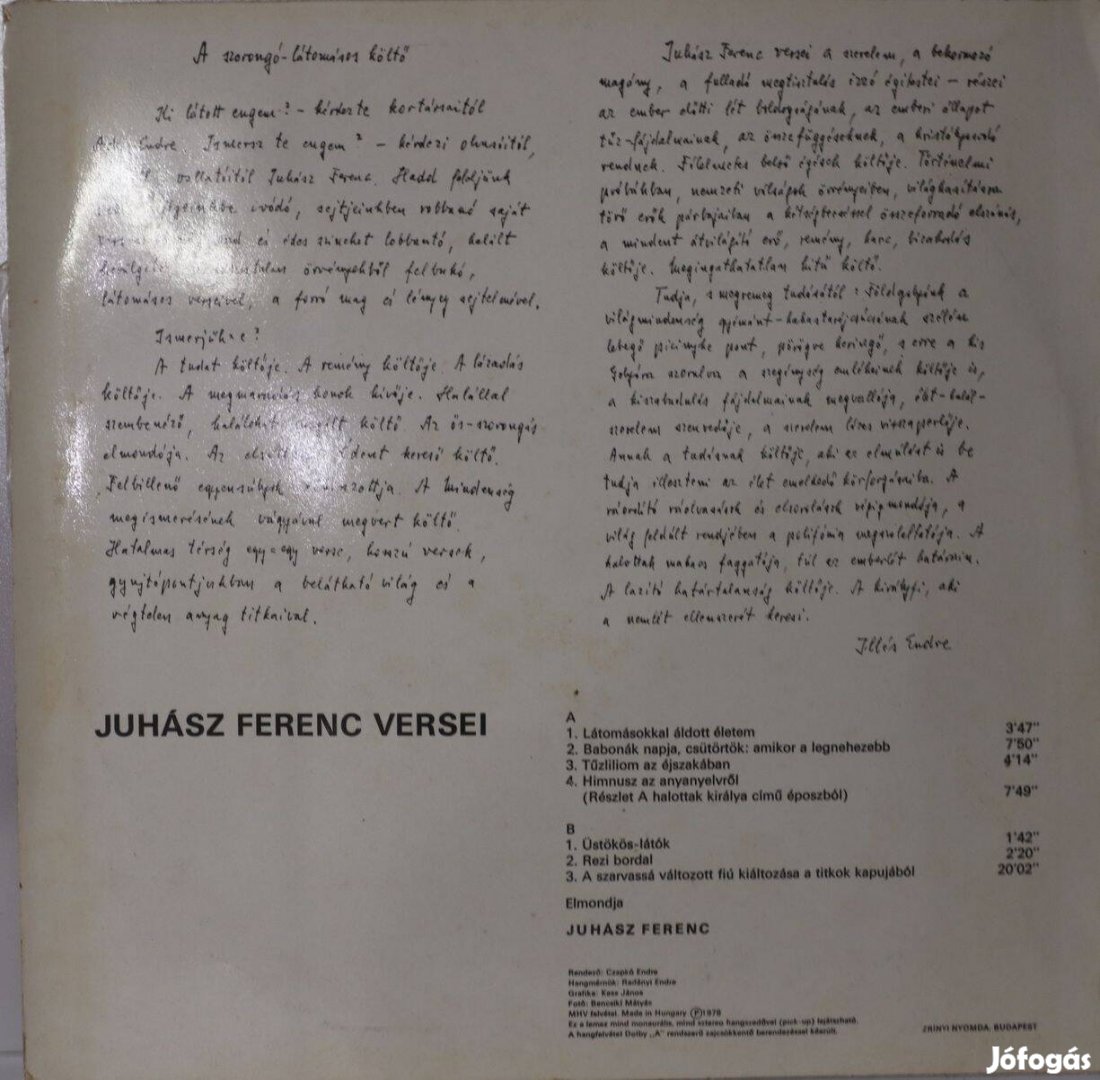 A szorongó-látomásos költő
Ki látott engem? - kérdezte kortársaitól
Endre. Ismersz te engem? - kérdezi olvasóitól,
vallatóitól Juhász Ferenc. Hadd feleljünk
ivódó, sejtjeinkben robbanó saját
és édes színeket lobbantó, halált
örvényekből felbukó,
látomásos verseivel, a forró mag és lényeg sejtelmével.
Ismerjük-e?
A tudat költője. A remény költője. A lázadás
költője. A megmaradás konok hívője. Halállal
szembenéző, költő. Az ős-szorongás
elmondója. Az kereső költő.
Felbillenő egyensúlyok. A Mindenség
megismerésének vágyával megvert költő.
Hatalmas térség egy-egy verse, hosszú versek,
gyujtópontjukban a belátható világ és a
végtelen anyag titkaival.
Juhász Ferenc versei a szerelem, a bekormozó
magány, a fulladó megtisztulás izzó égitestei - részei
az ember előtti lét boldogságának, az emberi állapot
tűz-fájdalmainak, az összefüggéseknek, a kristályosodó
rendnek. Félelmetes belső égések költője. Történelmi
próbákban, nemzeti válságok örvényeiben, világhasításra
törő erők párbajaiban a kétségbeeséssel összeforradó elszánás,
a mindent átvilágító erő, remény, harc, bizakodás
költője. Megingathatatlan hitű költő.
Tudja, s megremeg tudásától: Földgolyónk a
világmindenség gyémánt-kakastaréjcsúcsának szélén
lebegő picinyke pont, pörögve keringő, s erre a kis
golyóra szorulva a szegénység emlékeinek költője is,
a kiszabadulás fájdalmainak megvallója,
szerelem szenvedője, a szerelem lázas visszaperlője.
Annak a tudásnak költője, aki az elmúlást is be
tudja illeszteni az élet emelkedő körforgásaiba. A
ráordító ráolvasások és elsorolások végigmondója, a
világ feldúlt rendjében a polifónia megszólaltatója. A
halottak makacs faggatója, túl az emberlét határain.
A lazító határtalanság költője. A királyfi, aki
a nemlét ellenszerét keresi.
Illés Endre
JUHÁSZ FERENC VERSEI
A
1. Látomásokkal áldott életem 3'47"
2. Babonák napja, csütörtök: amikor a legnehezebb 7'50"
3. Tűzliliom az éjszakában 4'14"
4. Himnusz az anyanyelvről
(Részlet A halottak királya című époszból) 7'49"
B
1. Üstökös-látók 1'42"
2. Rezi bordal 2'20"
3. A szarvassá változott fiú kiáltozása a titkok kapujából 20'02"
Elmondja
JUHÁSZ FERENC
Rendező: Czapkó Endre
Hangmérnök: Radányi Endre
Grafika: Kass János
Fotó: Bencsiki Mátyás
MHV felvétel. Made in Hungary Ⓟ1978
Ez a lemez mind monaurális, mind sztereo hangszedővel (pick-up) lejátszható.
A hangfelvétel Dolby „A" rendszerű zajcsökkentő berendezéssel készült.
ZRÍNYI NYOMDA, BUDAPEST
Jófogás